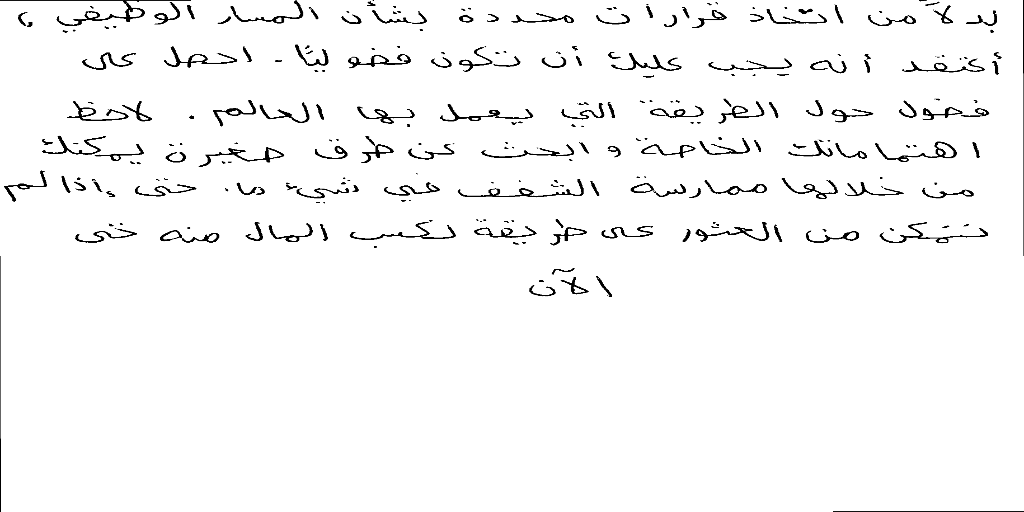 بدلاً من اتخاذ قرارات محددة بشأن المسار الوظيفي ،
أعتقد أنه يجب عليك أن تكون فضوليًا. احصل على
فضول حول الطريقة التي يعمل بها العالم. لاحظ
اهتماماتك الخاصة و ابحث عن طرق صغيرة يمكنك
من خلالها ممارسة الشغف في شيء ما. حتى إذا لم
تتمكن من العثور على طريقة لكسب المال منه حتى
الآن